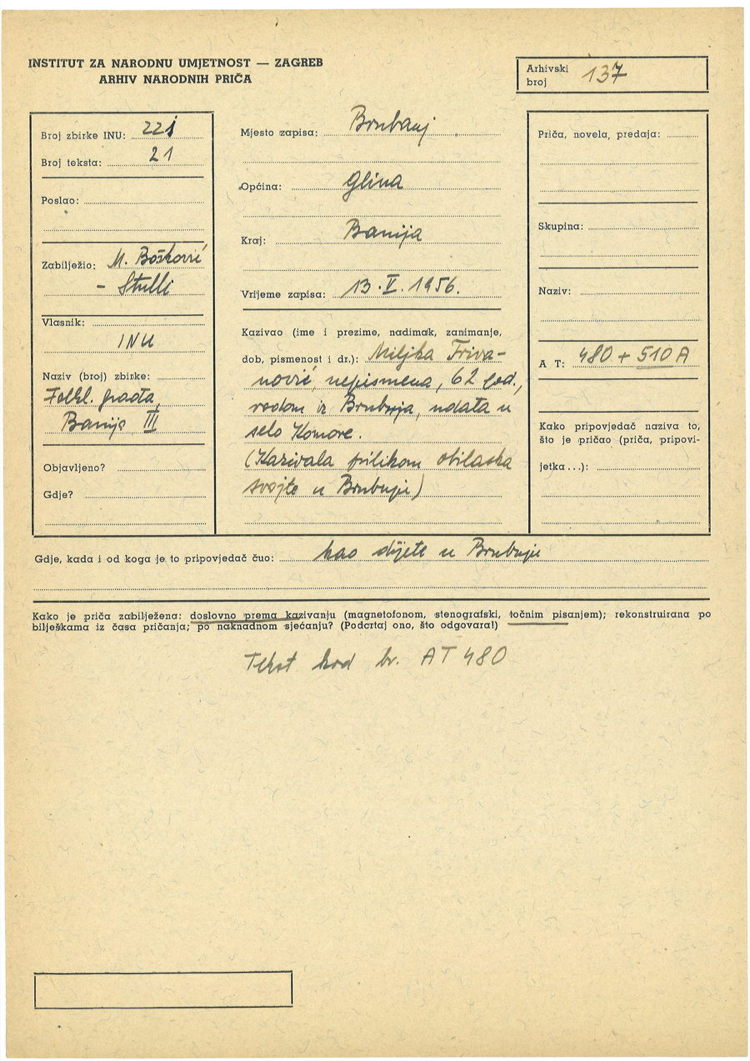 INSTITUT ZA NARODNU UMJETNOST — ZAGREB
ARHIV NARODNIH PRIČA
Arhivski broj 137
Broj zbirke INU: 221
Broj teksta: 21
Poslao:
Zabilježio: M. Bošković
- Stulli
Vlasnik:
INU
Naziv (broj) zbirke:
Folkl. građa,
Banija III
Objavljeno?
Gdje?
Mjesto zapisa: Brubanj
Općina: Glina
Kraj: Banija
Vrijeme zapisa: 13. V. 1956.
Kazivao (ime i prezime, nadimak, zanimanje,
dob, pismenost i dr.): Miljka Triva-
nović nepismena, 62 god.,
rodom iz Brubnja, udata u
selo Komore.
(Kazivala prilikom obilaska
svojte u Brubnju)
Priča, novela, predaja:
Skupina:
Naziv:
A T: 480 + 510 A
Kako pripovjedač naziva to,
što je pričao (priča, pripovi-
jetka...):
Gdje, kada i od koga je to pripovjedač čuo: kao dijete u Brubnju
Kako je priča zabilježena: doslovno prema kazivanju (magnetofonom, stenografski, točnim pisanjem); rekonstruirana po
bilješkama iz časa pričanja; po naknadnom sjećanju? (Podcrtaj ono, što odgovara!)
Tekst kod br. AT 480